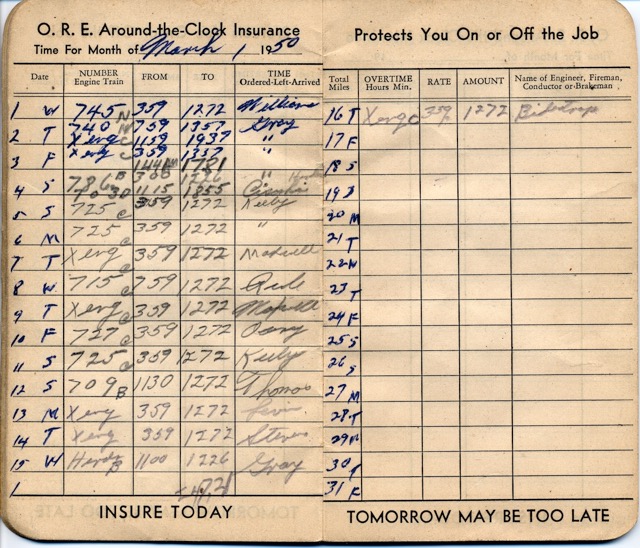 O. R. E. Around-the-Clock Insurance
Time For Month of March 1 1950
Date NUMBER Engine Train FROM TO TIME Ordered-Left-Arrived
1 W 745 N 359 1272 Williams
2 T 740 N 759 1357 Gray
Xerg C 1159 1937 "
3 F Xerg C 359 1357 "
1781
4 S 786 B
1030 1115 1855
5 S 725 C 359 1272 Kieby
6 M 725 C 359 1272 "
7 T Xerg C 359 1272 Maxwell
8 W 715 C 759 1272
9 T Xerg C 359 1272 Maxwell
10 F 727 C 359 1272
11 S 725 C 359 1272 Kieby
12 S 709 B 1130 1272 Thomas
13 M Xerg 359 1272
14 T Xerg 359 1272 Stevens
15 W B 1100 1226 Gray
1
INSURE TODAY
Protects You On or Off the Job
Total Miles OVERTIME Hours Min. RATE AMOUNT Name of Engineer, Fireman, Conductor or Brakeman
16 T Xerg C 359 1272
17 F
18 S
19 S
20 M
21 T
22 W
23 T
24 F
25 S
26 S
27 M
28 T
29 W
30 T
31 F
TOMORROW MAY BE TOO LATE